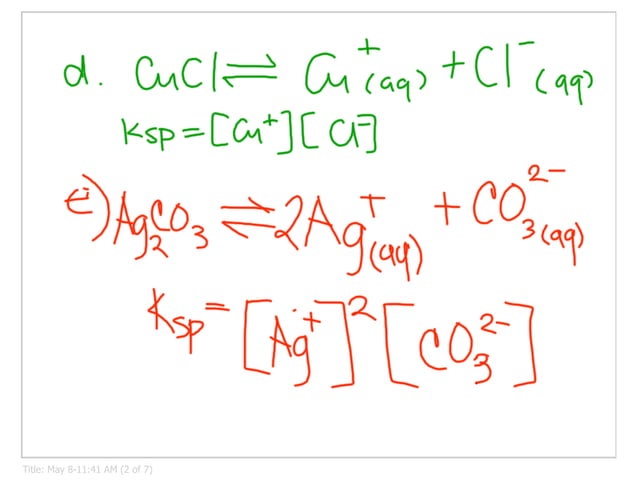 d. CuCl ⇌ Cu⁺(aq) + Cl⁻(aq)
Ksp = [Cu⁺][Cl⁻]
e) Ag₂CO₃ ⇌ 2Ag⁺(aq) + CO₃²⁻(aq)
Ksp = [Ag⁺]²[CO₃²⁻]
Title: May 8-11:41 AM (2 of 7)